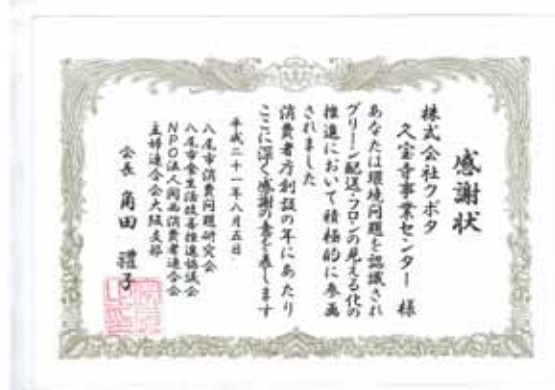 感謝状
株式会社クボタ
久宝寺事業センター 様
あなたは環境問題を認識され
グリーン配送・フロンの見える化の
推進において積極的に参画
されました
消費者庁創設の年にあたり
ここに深く感謝の意を表します
平成二十一年八月五日
八尾市消費問題研究会
八尾市食生活改善推進協議会
NPO法人関西消費者連合会
主婦連合会大阪支部
会長 角田 禮子